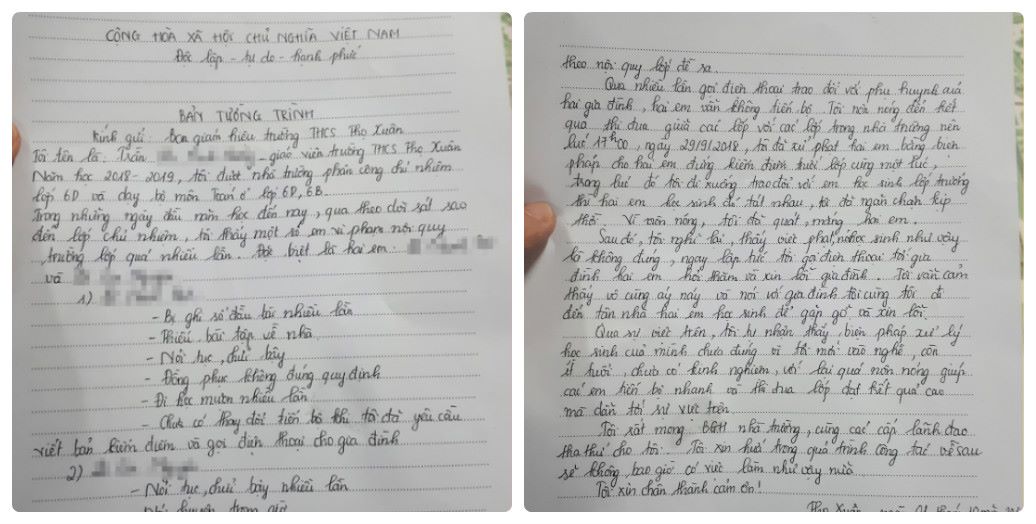 CỘNG HÒA XÃ HỘI CHỦ NGHĨA VIỆT NAM
Độc lập - tự do - hạnh phúc
BẢN TƯỜNG TRÌNH
Kính gửi: Ban giám hiệu trường THCS Thọ Xuân
Tôi tên là: Trần - giáo viên trường THCS Thọ Xuân
Năm học 2018 - 2019, tôi được nhà trường phân công chủ nhiệm
lớp 6D và dạy bộ môn Toán ở lớp 6D, 6B.
Trong những ngày đầu năm học đến nay, qua theo dõi sát sao
đến lớp chủ nhiệm, tôi thấy một số em vi phạm nội quy
trường lớp quá nhiều lần. Đặc biệt là hai em:
và
1)
- Bị ghi sổ đầu bài nhiều lần
- Thiếu bài tập về nhà
- Nói tục, chửi bậy
- Đồng phục không đúng quy định
- Đi học muộn nhiều lần
- Chưa có thay đổi tiến bộ khi tôi đã yêu cầu
viết bản kiểm điểm và gọi điện thoại cho gia đình
2)
- Nói tục, chửi bậy nhiều lần
chuyện trong giờ
theo nội quy lớp đề ra.
Qua nhiều lần gọi điện thoại trao đổi với phụ huynh của
hai gia đình, hai em vẫn không tiến bộ. Tôi nôn nóng đến kết
quả thi đua giữa các lớp với các lớp trong nhà trường nên
lúc 17h00, ngày 29/9/2018, tôi đã xử phạt hai em bằng biện
pháp cho hai em đứng kiểm điểm trước lớp cùng một lúc,
trong lúc đó tôi đi xuống trao đổi với em học sinh lớp trưởng
thì hai em học sinh đó tát nhau, tôi đã ngăn chặn kịp
thời. Vì nôn nóng, tôi đã quát, mắng hai em.
Sau đó, tôi nghĩ lại, thấy việc phạt học sinh như vậy
là không đúng, ngay lập tức tôi gọi điện thoại tới gia
đình hai em hỏi thăm và xin lỗi gia đình. Tôi vẫn cảm
thấy vô cùng áy náy và nói với gia đình tối cùng tôi để
đến tận nhà hai em học sinh để gặp gỡ và xin lỗi.
Qua sự việc trên, tôi tự nhận thấy, biện pháp xử lý
học sinh của mình chưa đúng vì tôi mới vào nghề, còn
ít tuổi, chưa có kinh nghiệm, với lại quá nôn nóng giúp
các em tiến bộ nhanh và thi đua lớp đạt kết quả cao
mà dẫn tới sự việc trên
Tôi rất mong: BGH nhà trường, cùng các cấp lãnh đạo
tha thứ cho tôi. Tôi xin hứa trong quá trình công tác về sau
sẽ không bao giờ có việc làm như vậy nữa.
Tôi xin chân thành cảm ơn!
Thọ Xuân, ngày